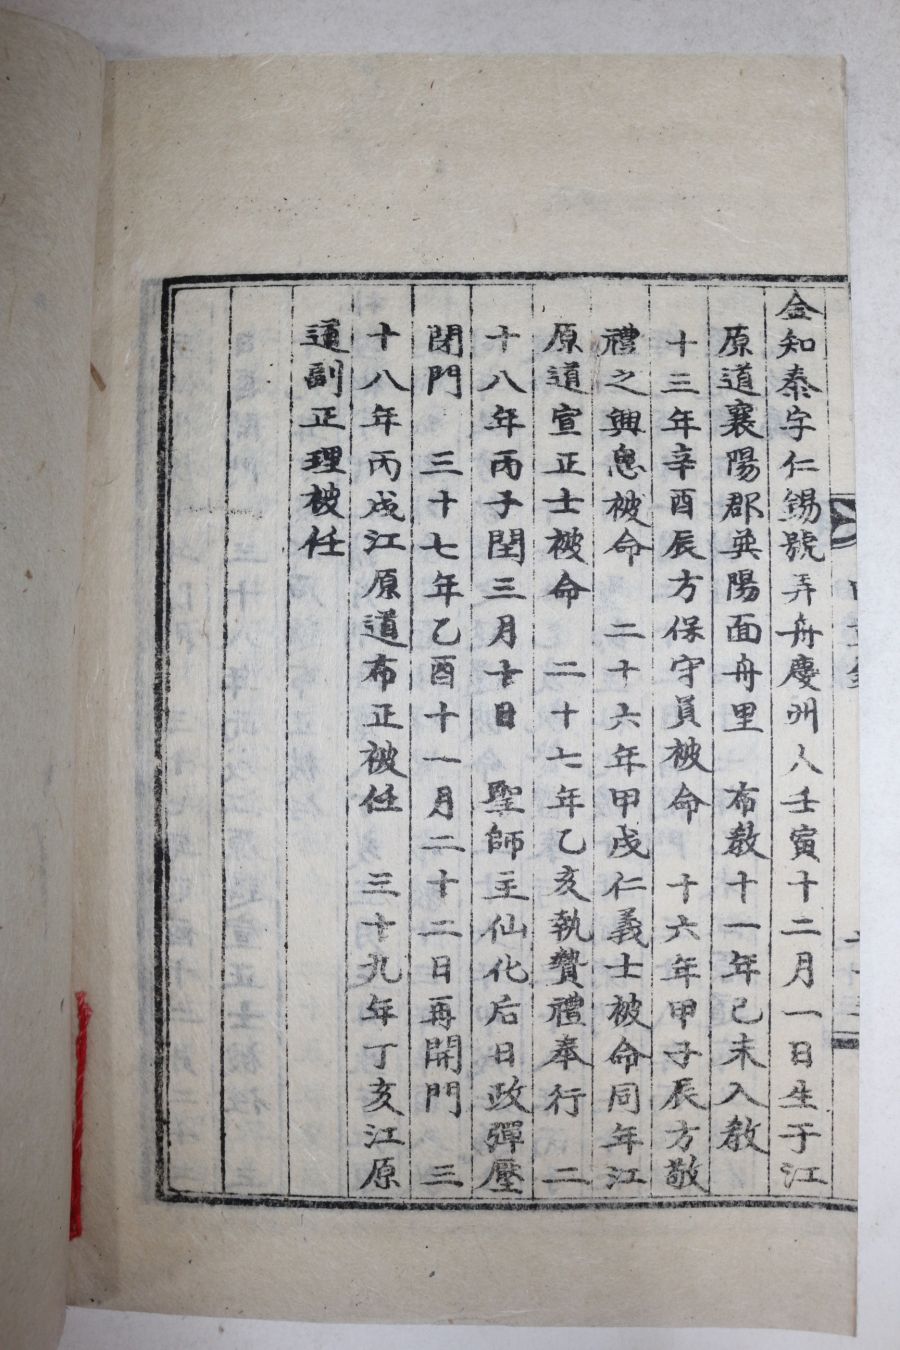 金知泰字仁錫號弄舟慶州人壬寅十二月一日生于江
原道襄陽郡巽陽面舟里 布教十一年己未入教
十三年辛酉辰方保守員被命 十六年甲子辰方敬
禮之興息被命 二十六年甲戌仁義士被命同年江
原道宣正士被命 二十七年乙亥執贊禮奉行 二
十八年丙子閏三月十日 聖師主仙化后日政彈壓
閉門 三十七年乙酉十一月二十二日再開門 三
十八年丙戌江原道布正被任 三十九年丁亥江原
道副正理被任